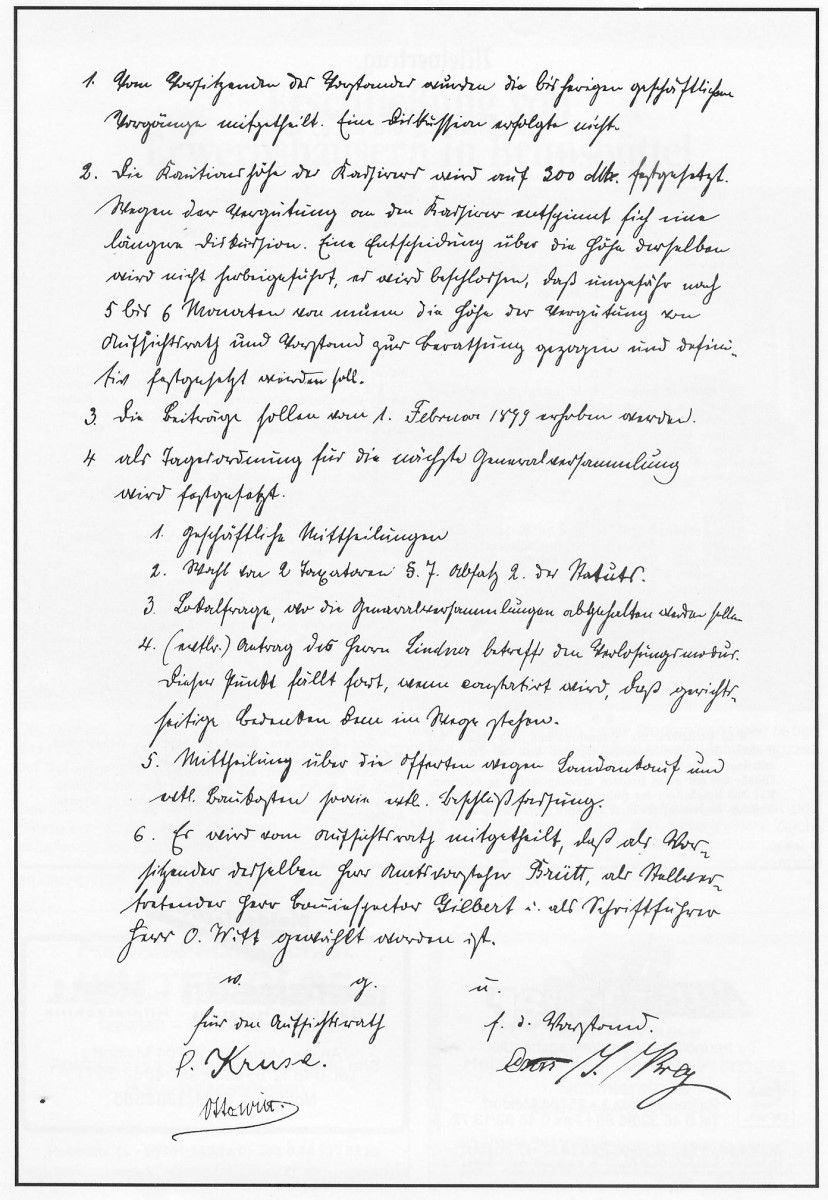 1. Vom Vorsitzenden des Vorstandes wurden die bisherigen geschäftlichen
Vorgänge mitgetheilt. Eine Diskussion erfolgte nicht.
2. Die Kautionshöhe des Kassirers wird auf 300 Mk. festgesetzt.
Wegen der Vergütung an den Kassirer entspinnt sich eine
längere Diskussion. Eine Entscheidung über die Höhe derselben
wird nicht herbeigeführt, es wird beschlossen, daß ungefähr nach
5 bis 6 Monaten von neuem die Höhe der Vergütung von
Aufsichtsrath und Vorstand zur Berathung gezogen und defini-
tiv festgesetzt werden soll.
3. Die Beiträge sollen vom 1. Februar 1899 erhoben werden.
4 als Tagesordnung für die nächste Generalversammlung
wird festgesetzt.
1. Geschäftliche Mittheilungen
2. Wahl von 2 Taxatoren §. 7. Absatz 2. des Statuts.
3. Lokalfrage, wo die Generalversammlungen abgehalten werden sollen
4. (evtlr.) Antrag des Herrn Lindner betreffs den Verlosungsmodus.
Dieser Punkt fällt fort, wenn constatirt wird, daß gerichts-
seitige Bedenken dem im Wege stehen.
5. Mittheilung über die Offerten wegen Landankauf und
evtl. Baukosten sowie evtl. Beschlußfassung.
6. Es wird vom Aufsichtsrath mitgetheilt, daß als Vor-
sitzender desselben Herr Amtsvorsteher Brütt, als Stellver-
tretender Herr Bauinspector Gilbert u. als Schriftführer
Herr O. Witt gewählt worden ist.
v. g. u.
für den Aufsichtsrath f. d. Vorstand.
Kruse.
Otto Witt.